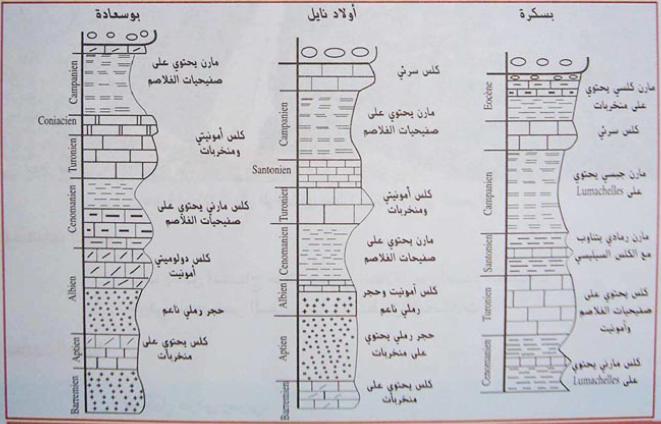 بوسعادة
Campanien
مارن يحتوي على
صفيحيات الغلاصم
Coniacien
Turonien
كلس أمونيتي
ومنخربات
Cenomanien
كلس مارني يحتوي على
صفيحيات الغلاصم
Albien
كلس دولوميتي
أمونيت
حجر رملي ناعم
Aptien
كلس يحتوي على
منخربات
Barremien
أولاد نايل
كلس سرئي
Campanien
مارن يحتوي على
صفيحيات الغلاصم
Santonien
Turonien
كلس أمونيتي
ومنخربات
Cenomanien
مارن يحتوي على
صفيحات الغلاصم
Albien
كلس أمونيت وحجر
رملي ناعم
Aptien
حجر رملي يحتوي
على منخربات
Barremien
كلس يحتوي على
منخربات
بسكرة
Eocène
مارن كلسي يحتوي
على منخربات
كلس سرئي
Campanien
مارن جبسي يحتوي
على Lumachelles
Santonien
مارن رمادي يتناوب
مع الكلس السيليسي
Turonien
كلس يحتوي على
صفيحيات الغلاصم
وأمونيت
Cenomanien
كلس مارني يحتوي
على Lumachelles